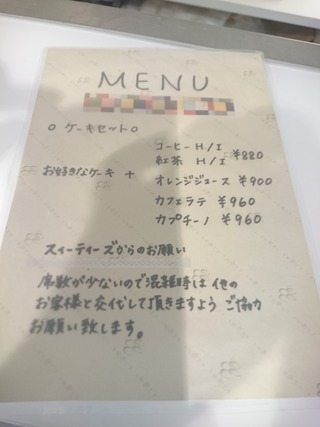 MENU
○ ケーキセット○
コーヒー H/I
紅茶 H/I ¥880
お好きなケーキ + オレンジジュース ¥900
カフェラテ ¥960
カプチーノ ¥960
スィーティーズからのお願い
席数が少ないので混雑時は他の
お客様と交代して頂きますよう ご協力
お願い致します。